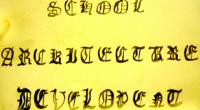 SCHOOL
ARCKITECTURE
DEVELOPENT